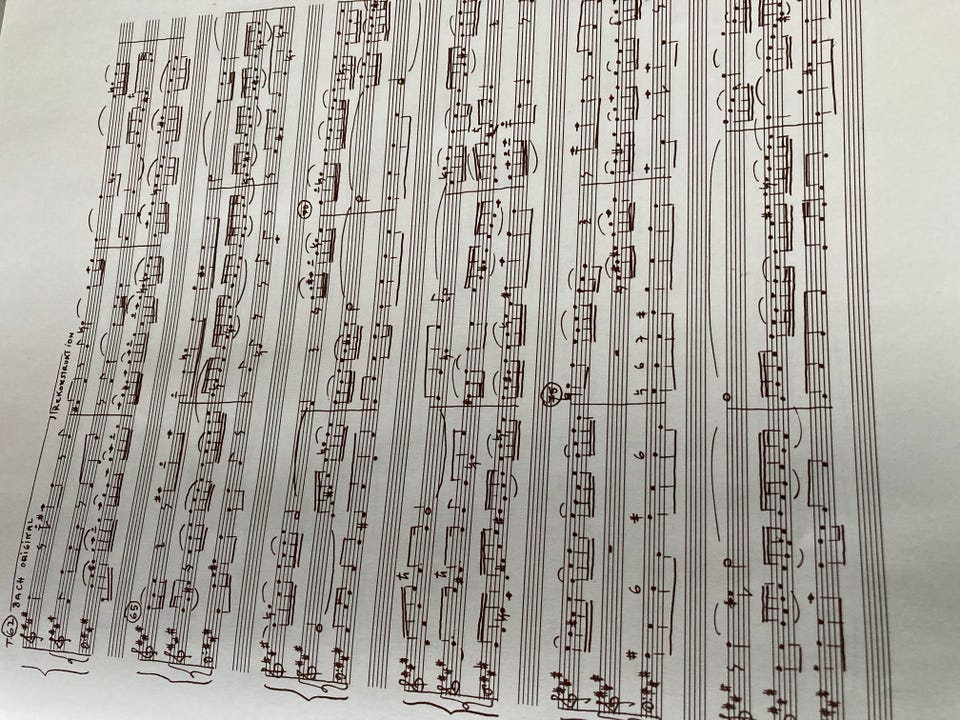 T. 62 BACH ORIGINAL REKONSTRUKTION
65
70
75
6 6 6 7